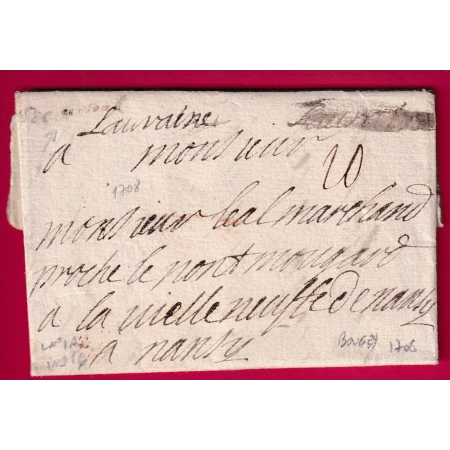 Lauraine
a monsieur
20
1708
monsieur leal marchand
proche le pont mougard
a la vielle neufve de nansy
a nansy
BOUGEY 1708